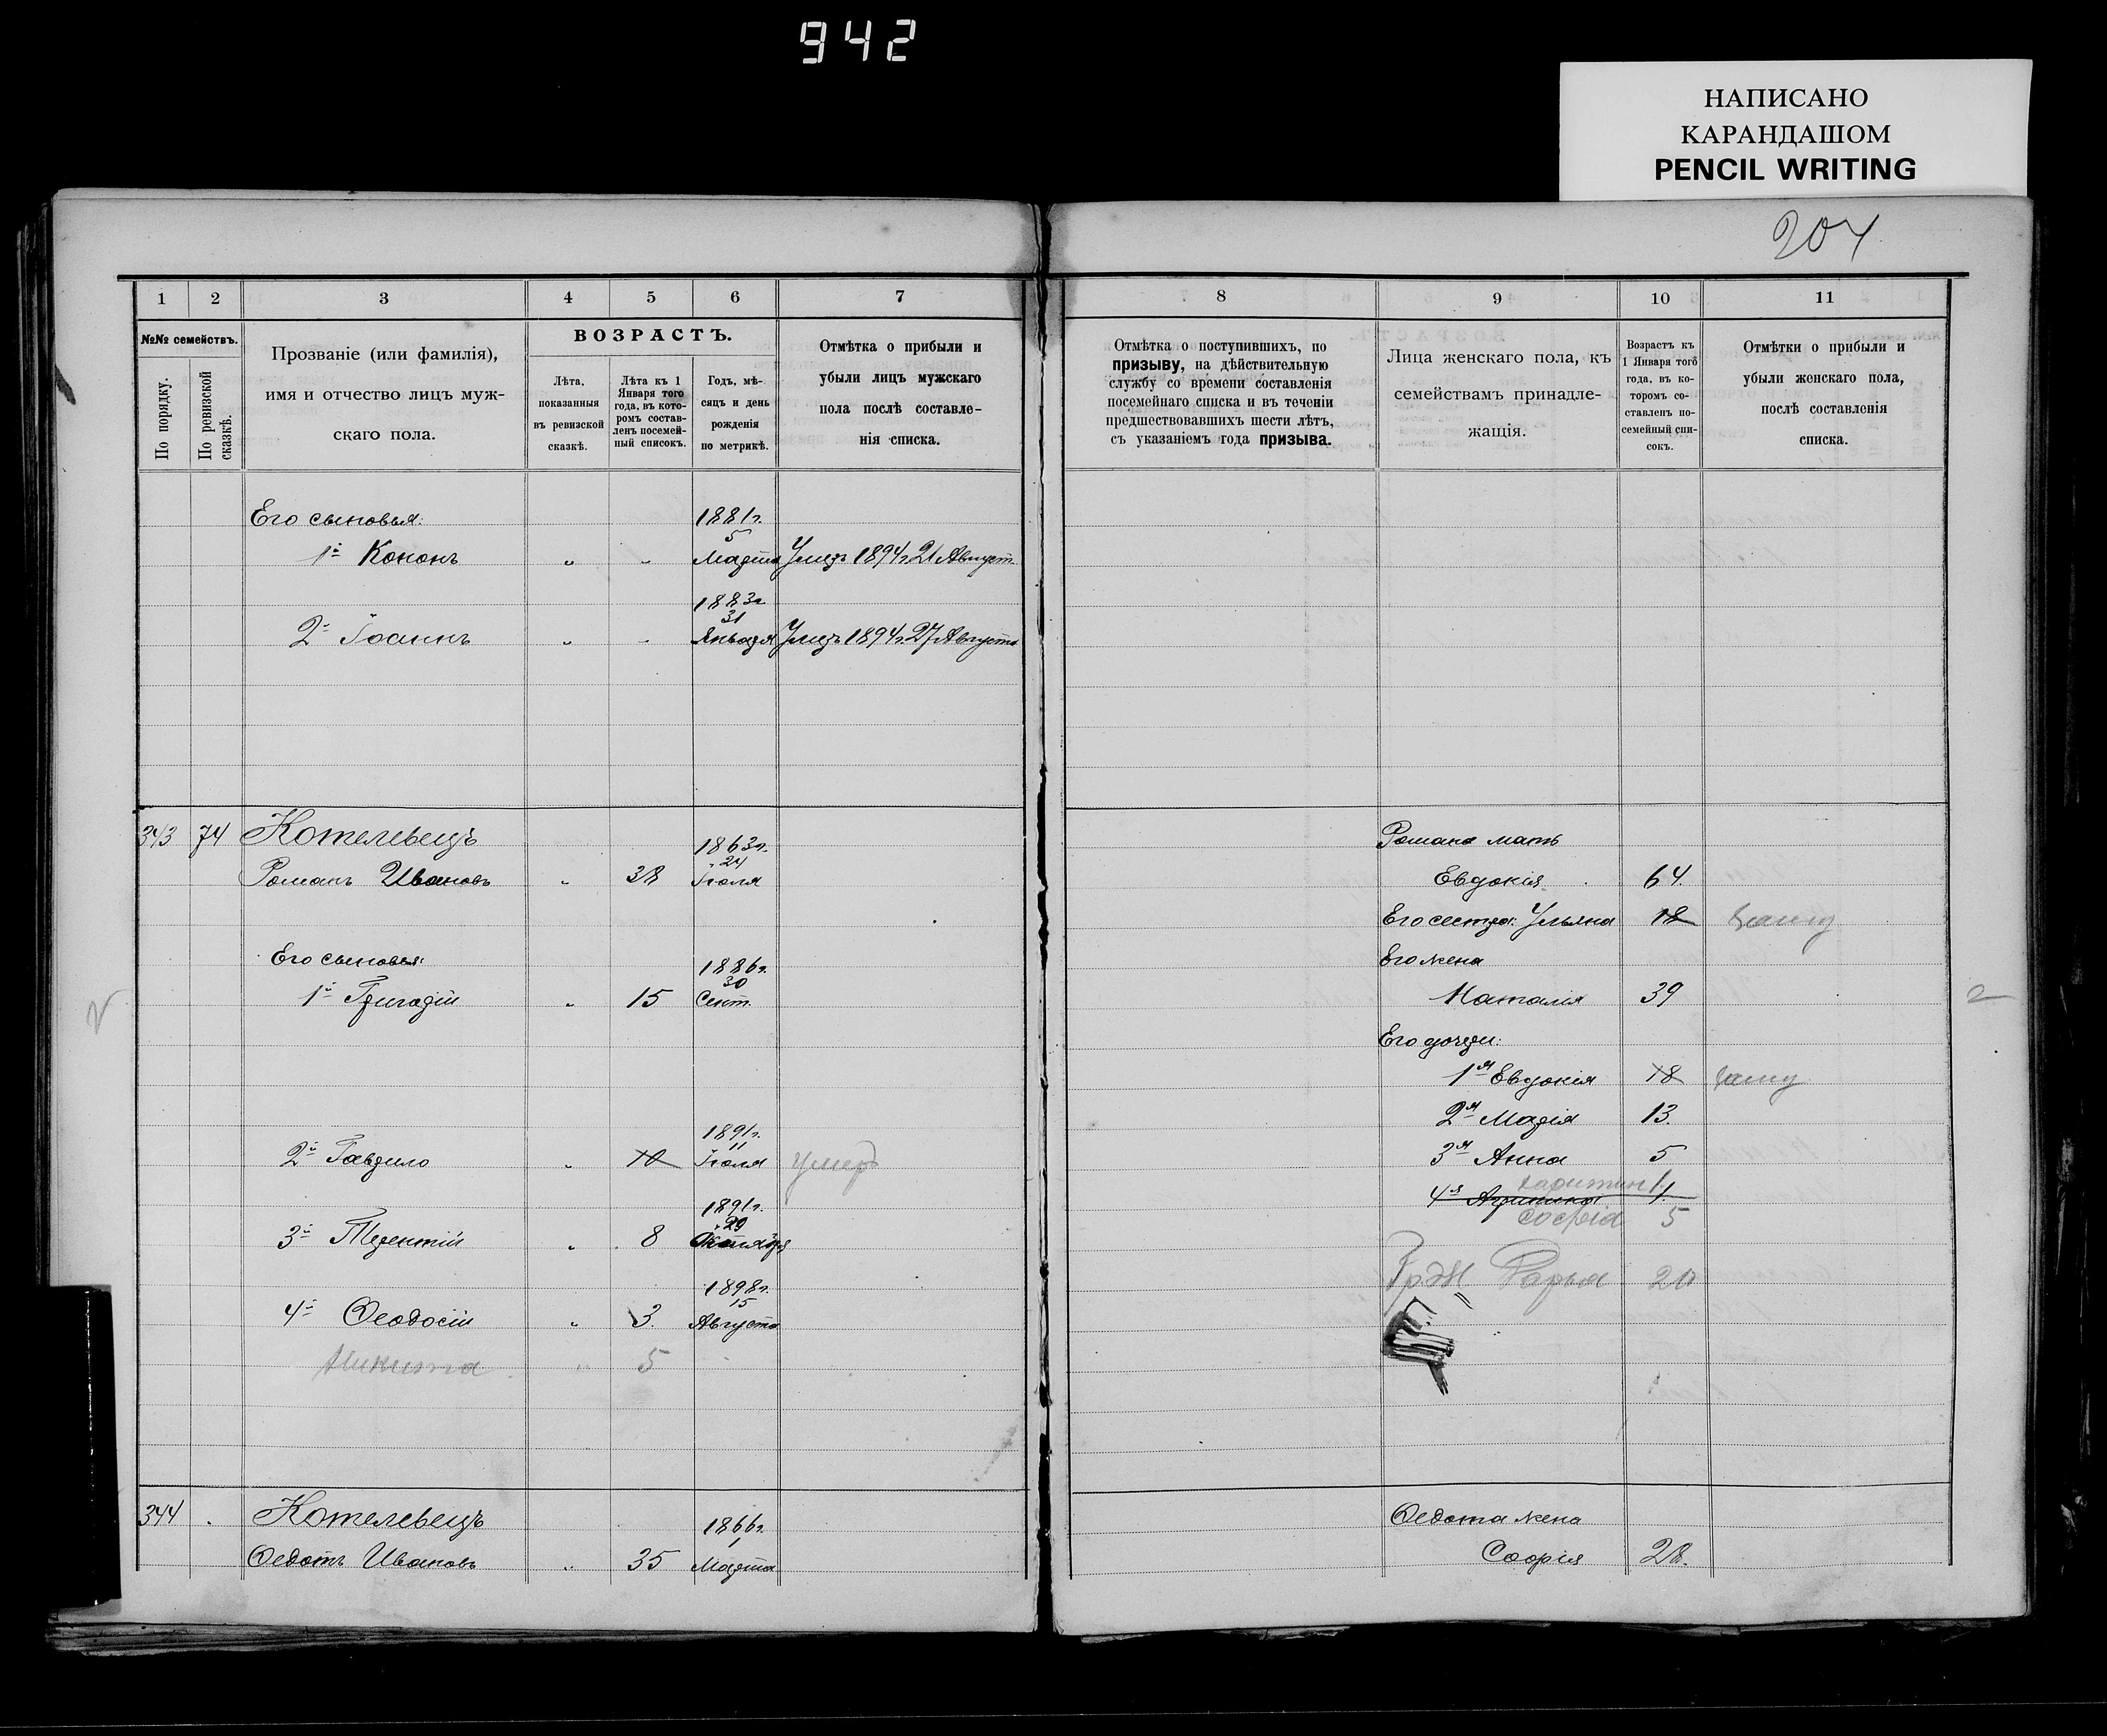 942
НАПИСАНО
КАРАНДАШОМ
PENCIL WRITING
204
1 2 3 4 5 6 7
№№ семействъ.
По порядку.
По ревизской сказкѣ.
Прозваніе (или фамилія),
имя и отчество лицъ муж-
скаго пола.
ВОЗРАСТЪ.
Лѣта,
показанныя
въ ревизской
сказкѣ.
Лѣта къ 1
Января того
года, въ кото-
ромъ состав-
ленъ посемей-
ный списокъ.
Годъ, мѣ-
сяцъ и день
рожденія
по метрикѣ.
Отмѣтка о прибыли и
убыли лицъ мужскаго
пола послѣ составле-
нія списка.
Его сыновья: 1881г.
5
1й Кононъ " " Марта Умеръ 1894г. 21 Август.
1883г.
31
2й Іоаннъ " " Января Умеръ 1894г. 27 Августа
343 74 Котелевецъ 1863г.
24
Романъ Ивановъ " 38 Іюля
Его сыновья: 1886г.
30
1й Григорій " 15 Сент.
1891г.
11
2й Гаврило " 10 Іюля умеръ
1891г.
29
3й Терентій " 8 Октября
1898г.
15
4й Ѳеодосій " 3 Августа
Никита " 5
344 " Котелевецъ 1866г.
1
Ѳедотъ Ивановъ " 35 Марта
8 9 10 11
Отмѣтка о поступившихъ, по
призыву, на дѣйствительную
службу со времени составленія
посемейнаго списка и въ теченіи
предшествовавшихъ шести лѣтъ,
съ указаніемъ года призыва.
Лица женскаго пола, къ
семействамъ принадле-
жащія.
Возрастъ къ
1 Января того
года, въ ко-
торомъ со-
ставленъ по-
семейный спи-
сокъ.
Отмѣтки о прибыли и
убыли женскаго пола,
послѣ составленія
списка.
Романа мать
Евдокія 64.
Его сестра: Ульяна 18
Его жена
Наталія 39
Его дочери:
1я Евдокія 18
2я Марія 13.
3я Анна 5
4я 1.
Софія 5
20
2
Ѳедота жена
Софія 28.